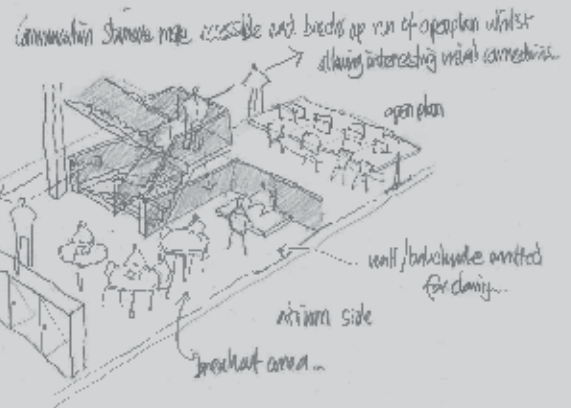 Communication Staircase more accessible and breaks up run of openplan whilst
allowing interesting visual connections.
open plan
wall/balustrade omitted
for clarity...
atrium side
breakout area...